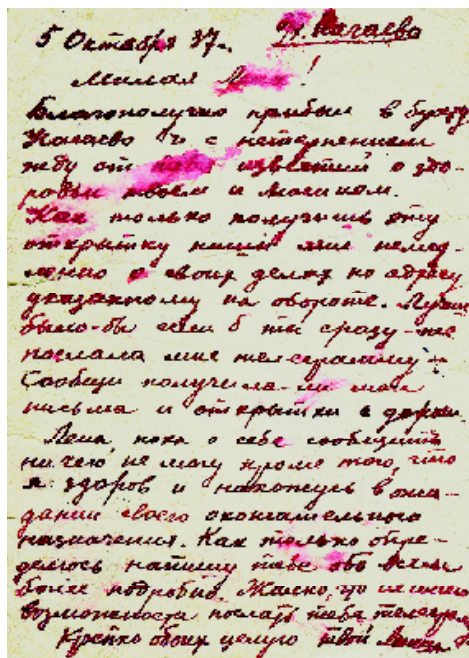 5 Октября 37г. б. Нагаево
Милая !
Благополучно прибыл в бухту
Нагаево и с нетерпением
жду от известий о здо-
ровьи твоем и
Как только получишь эту
открытку пиши мне немед-
ленно о своих делах по адресу
указанному на обороте. Лучше
было-бы если б ты сразу-же
послала мне телеграмму
Сообщи получила-ли мои
письма и открытки с дороги.
пока о себе сообщить
ничего не могу кроме того, что
я здоров и нахожусь в ожи-
дании своего окончательного
назначения. Как только опре-
делюсь напишу тебе обо всем
более подробно. Жалко, что не имею
возможности послать тебе телегр
Крепко обоих целую твой